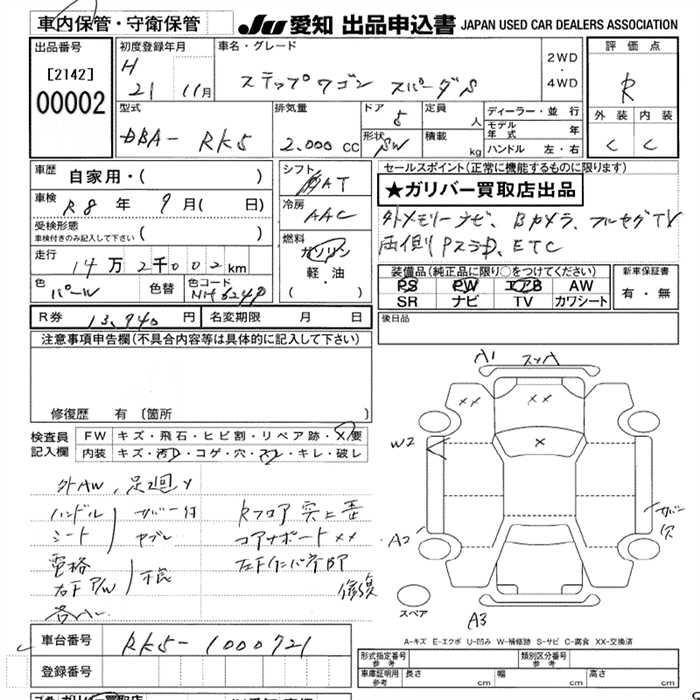 車内保管・守衛保管
JU 愛知 出品申込書 JAPAN USED CAR DEALERS ASSOCIATION
出品番号
[2142]
00002
初度登録年月
H 21 11月
車名・グレード
ステップワゴン スパーダS
2WD
・
4WD
評価点
R
外装 内装
C C
型式
DBA- RK5
排気量
2.000 cc
ドア
5
形状
SW
定員
人
積載
kg
ディーラー・並行
モデル年式 年
ハンドル 左・右
車歴
自家用・( )
車検
R8 年 9 月( 日)
受検形態
車検付きのみ記入して下さい ( )
走行
14万2千002km
色
パール
色替
色コード
NH624P
シフト
AT
冷房
AAC
燃料
ガソリン
軽・油
( )
セールスポイント(正常に機能するものに限ります)
★ガリバー買取店出品
外メモリーナビ、Bカメラ、フルセグTV
両側Pスラ、ETC
装備品(純正品に限り○をつけてください)
PS PW エアB AW
SR ナビ TV カワシート
新車保証書
有・無
R券 13,940 円
名変期限 月 日
後日品
注意事項申告欄(不具合内容等は具体的に記入して下さい)
修復歴 有 (箇所
検査員記入欄
FW キズ・飛石・ヒビ割・リペア跡・X要
内装 キズ・汚レ・コゲ・穴・スレ・キレ・破レ
外AW、足回サ
ハンドル
シート
サバー付
ヤブレ
電格
右下P/W
不良
Rフロア 突上歪
コアサポート XX
修復
A1
XX
XX
X
W2
A2
A3
スペア
A-キズ E-エクボ U-凹み W-補修跡 S-サビ C-腐食 XX-交換済
車台番号
RK5-1000721
登録番号
形式指定番号
参考
類別区分番号
参考
車庫証明用
参考
長さ cm
幅 cm
高さ cm